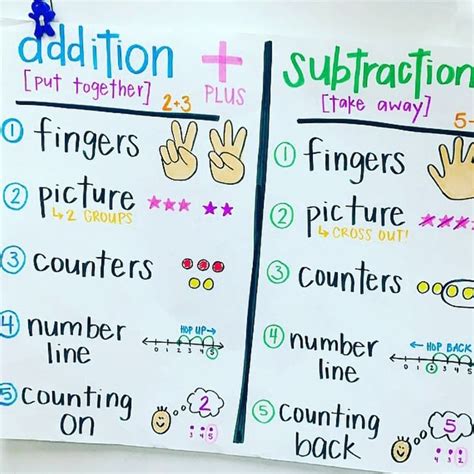 addition
[put together] 2+3
+
PLUS
① fingers
② picture
↳ 2 GROUPS
③ counters
④ number
line
HOP UP→
0 1 2 3 4 5
⑤ counting
on
2
3 4 5
subtraction
[take away] 5-
① fingers
② picture
↳ CROSS OUT!
③ counters
④ number
line
← HOP BACK
0 1 2 3 4
⑤ counting
back
5
4 3 2